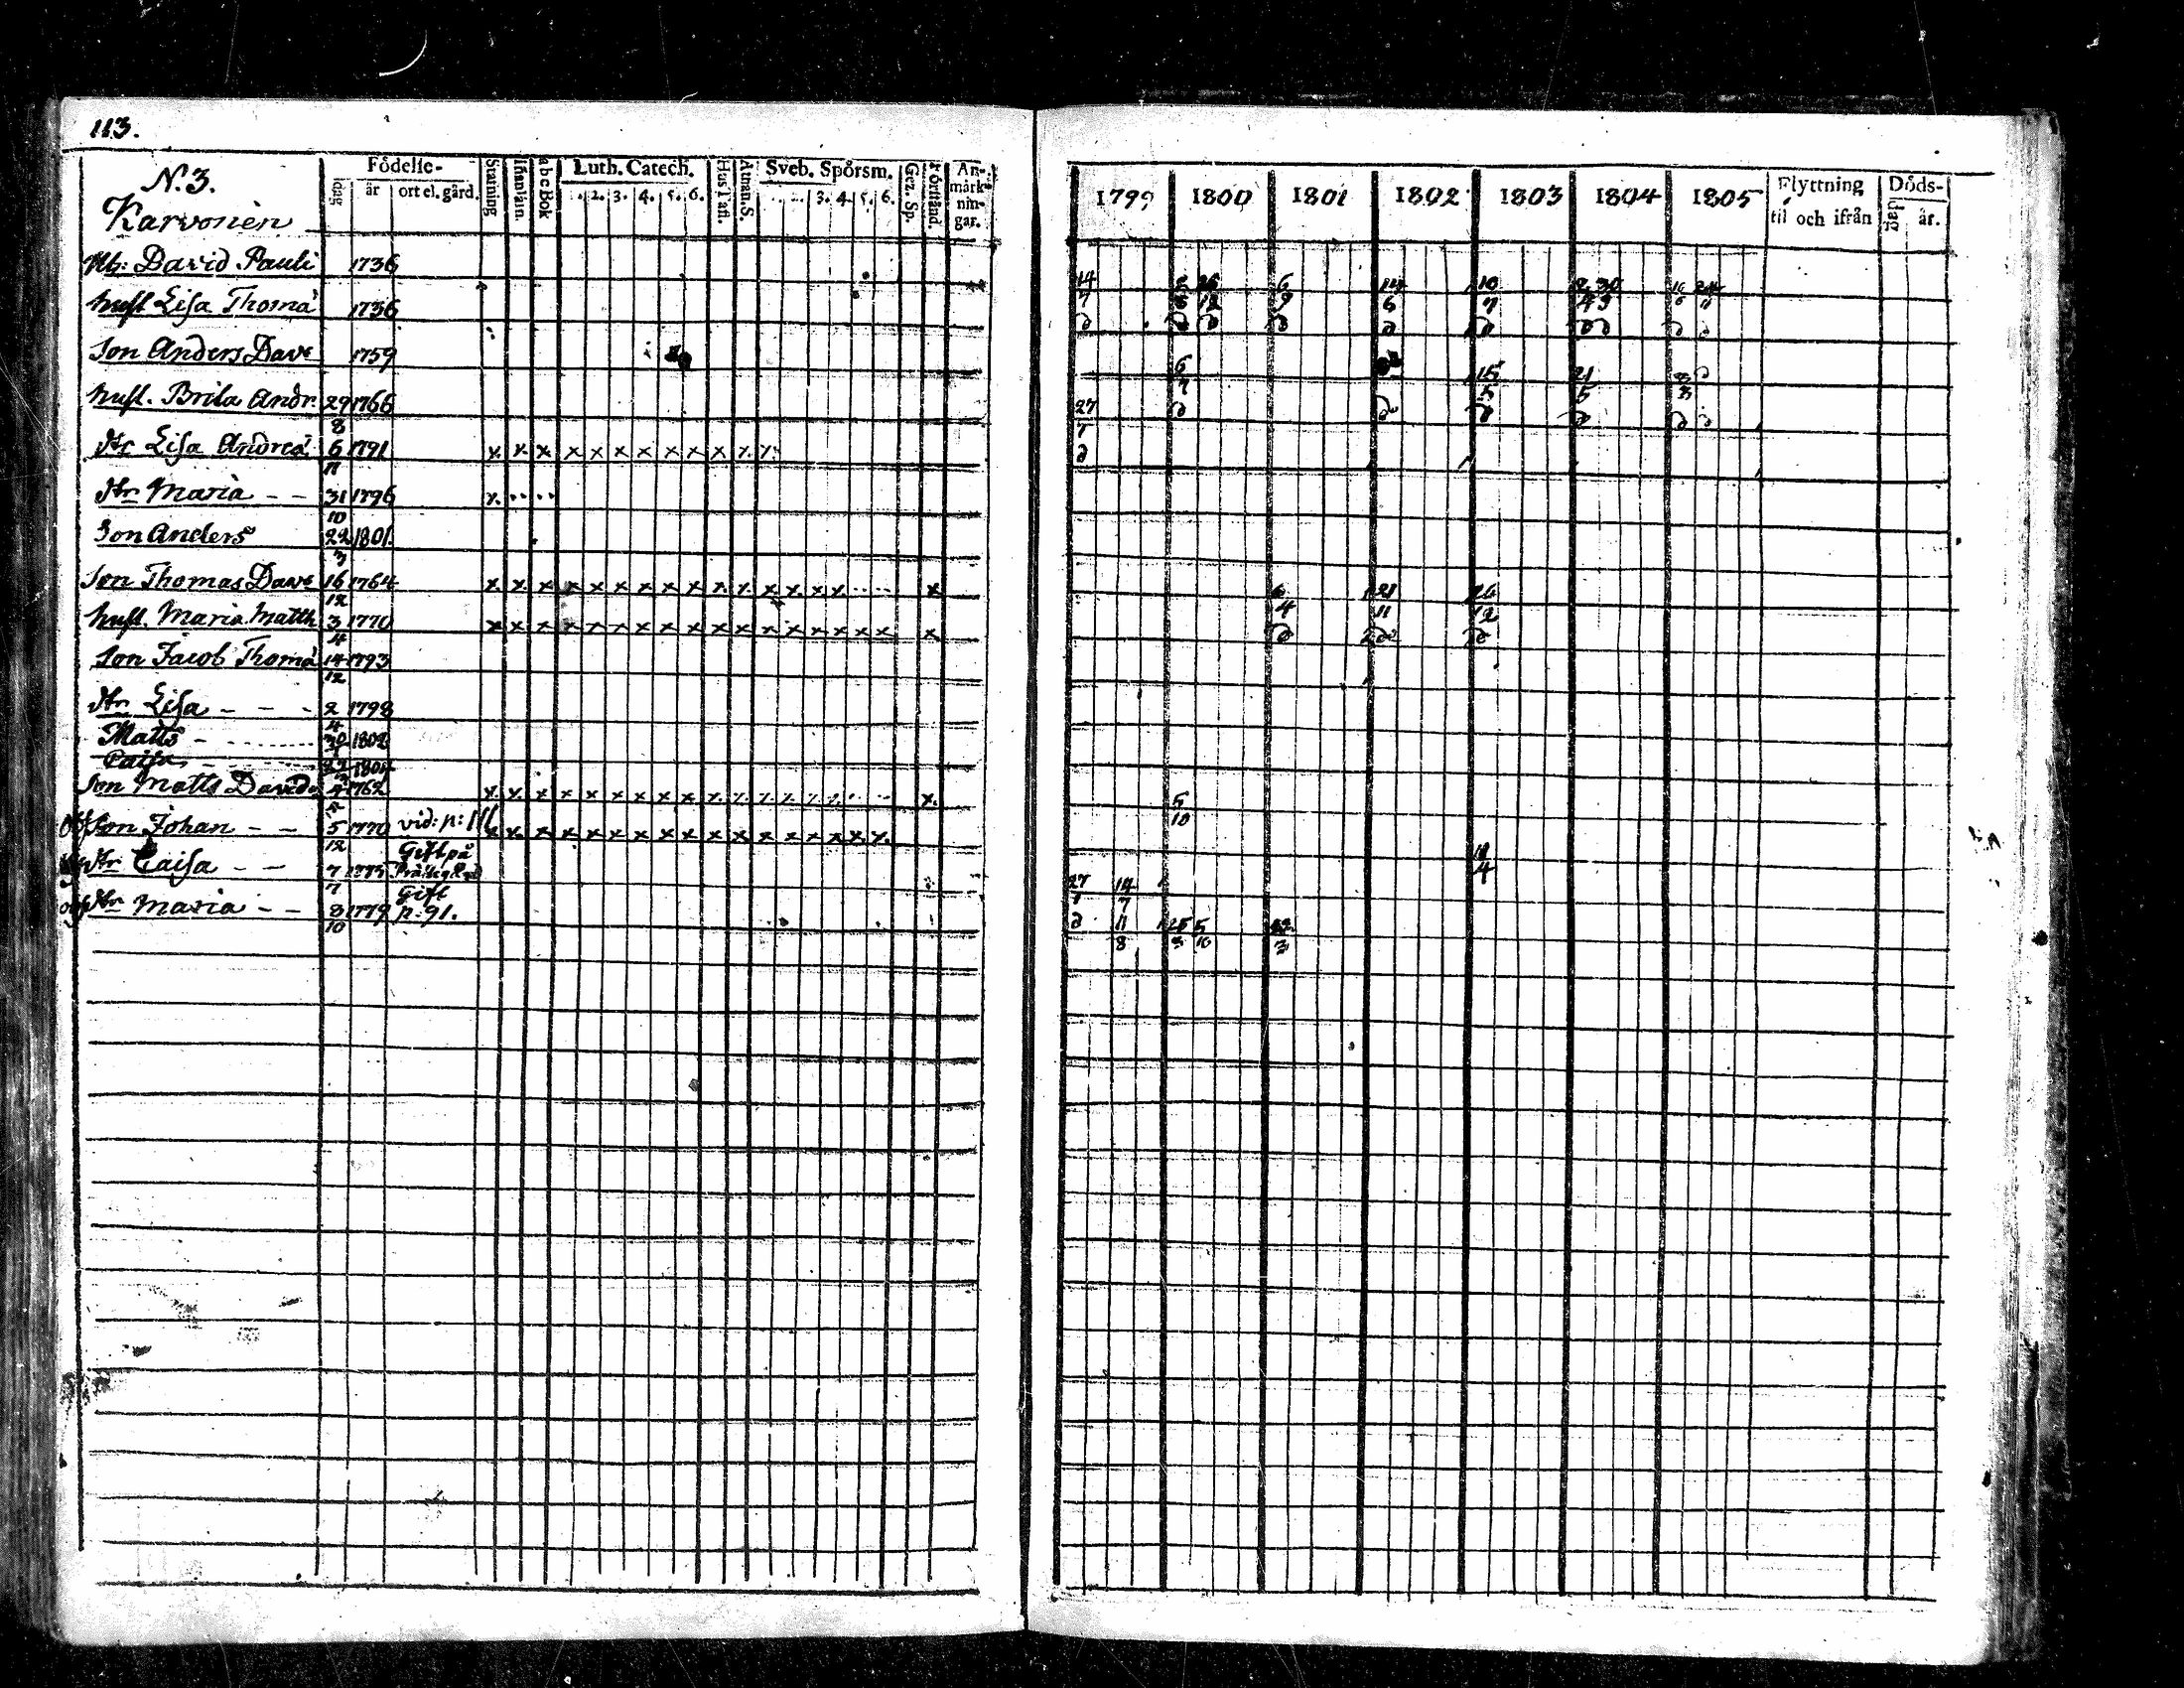 113.
N. 3.
Karvonen
Födelse-
dag
år
ort el. gård.
Stafning
abcBok
Luth. Catech.
2. 3. 4. 5. 6.
Hustafl.
Athan. S.
Sveb. Spörsm.
3. 4. 5. 6.
Gez. Sp.
Förstånd.
An-
märk-
nin-
gar.
1799 1800 1801 1802 1803 1804 1805
Flyttning
til och ifrån
Döds-
dag
år.
Hb: David Pauli 1736
hust Lisa Thoma 1736
Son Anders Dave 1759
hust. Brita Andr. 29 1766
8
dtr Lisa Andrea 6 1791 x x x x x x x x x x x x
11
dtr Maria - - 31 1796 x
10
Son Anders 22 1801
3
Son Thomas Dave 16 1764 x x x x x x x x x x x x x x x x
12
hust. Maria Matth 3 1770 x x x x x x x x x x x x x x x x x x
4
Son Jacob Thoma 14 1793
12
dtr Lisa - - - 2 1798
4
Matts - 1802
Caisa 1804
Son Matts Davids 4 1762 x x x x x x x x x x x x x x x
Son Johan - - 5 1770 vid: p: 111 x x x x x x x x x x x x x x x x
12
Gift på
dtr Caisa - - 7 1775
7
Gift
dtr Maria - - 8 1779 p. 91.
10
14 26 6 14 10 2 30 24
7 8 12 9 6 7 4 9 6 11
6 15 21
7 5 5 3
27
7
6 21 26
4 11 12
5
10
4
27 14
7 7
11 25 5 22
8 3 10 3